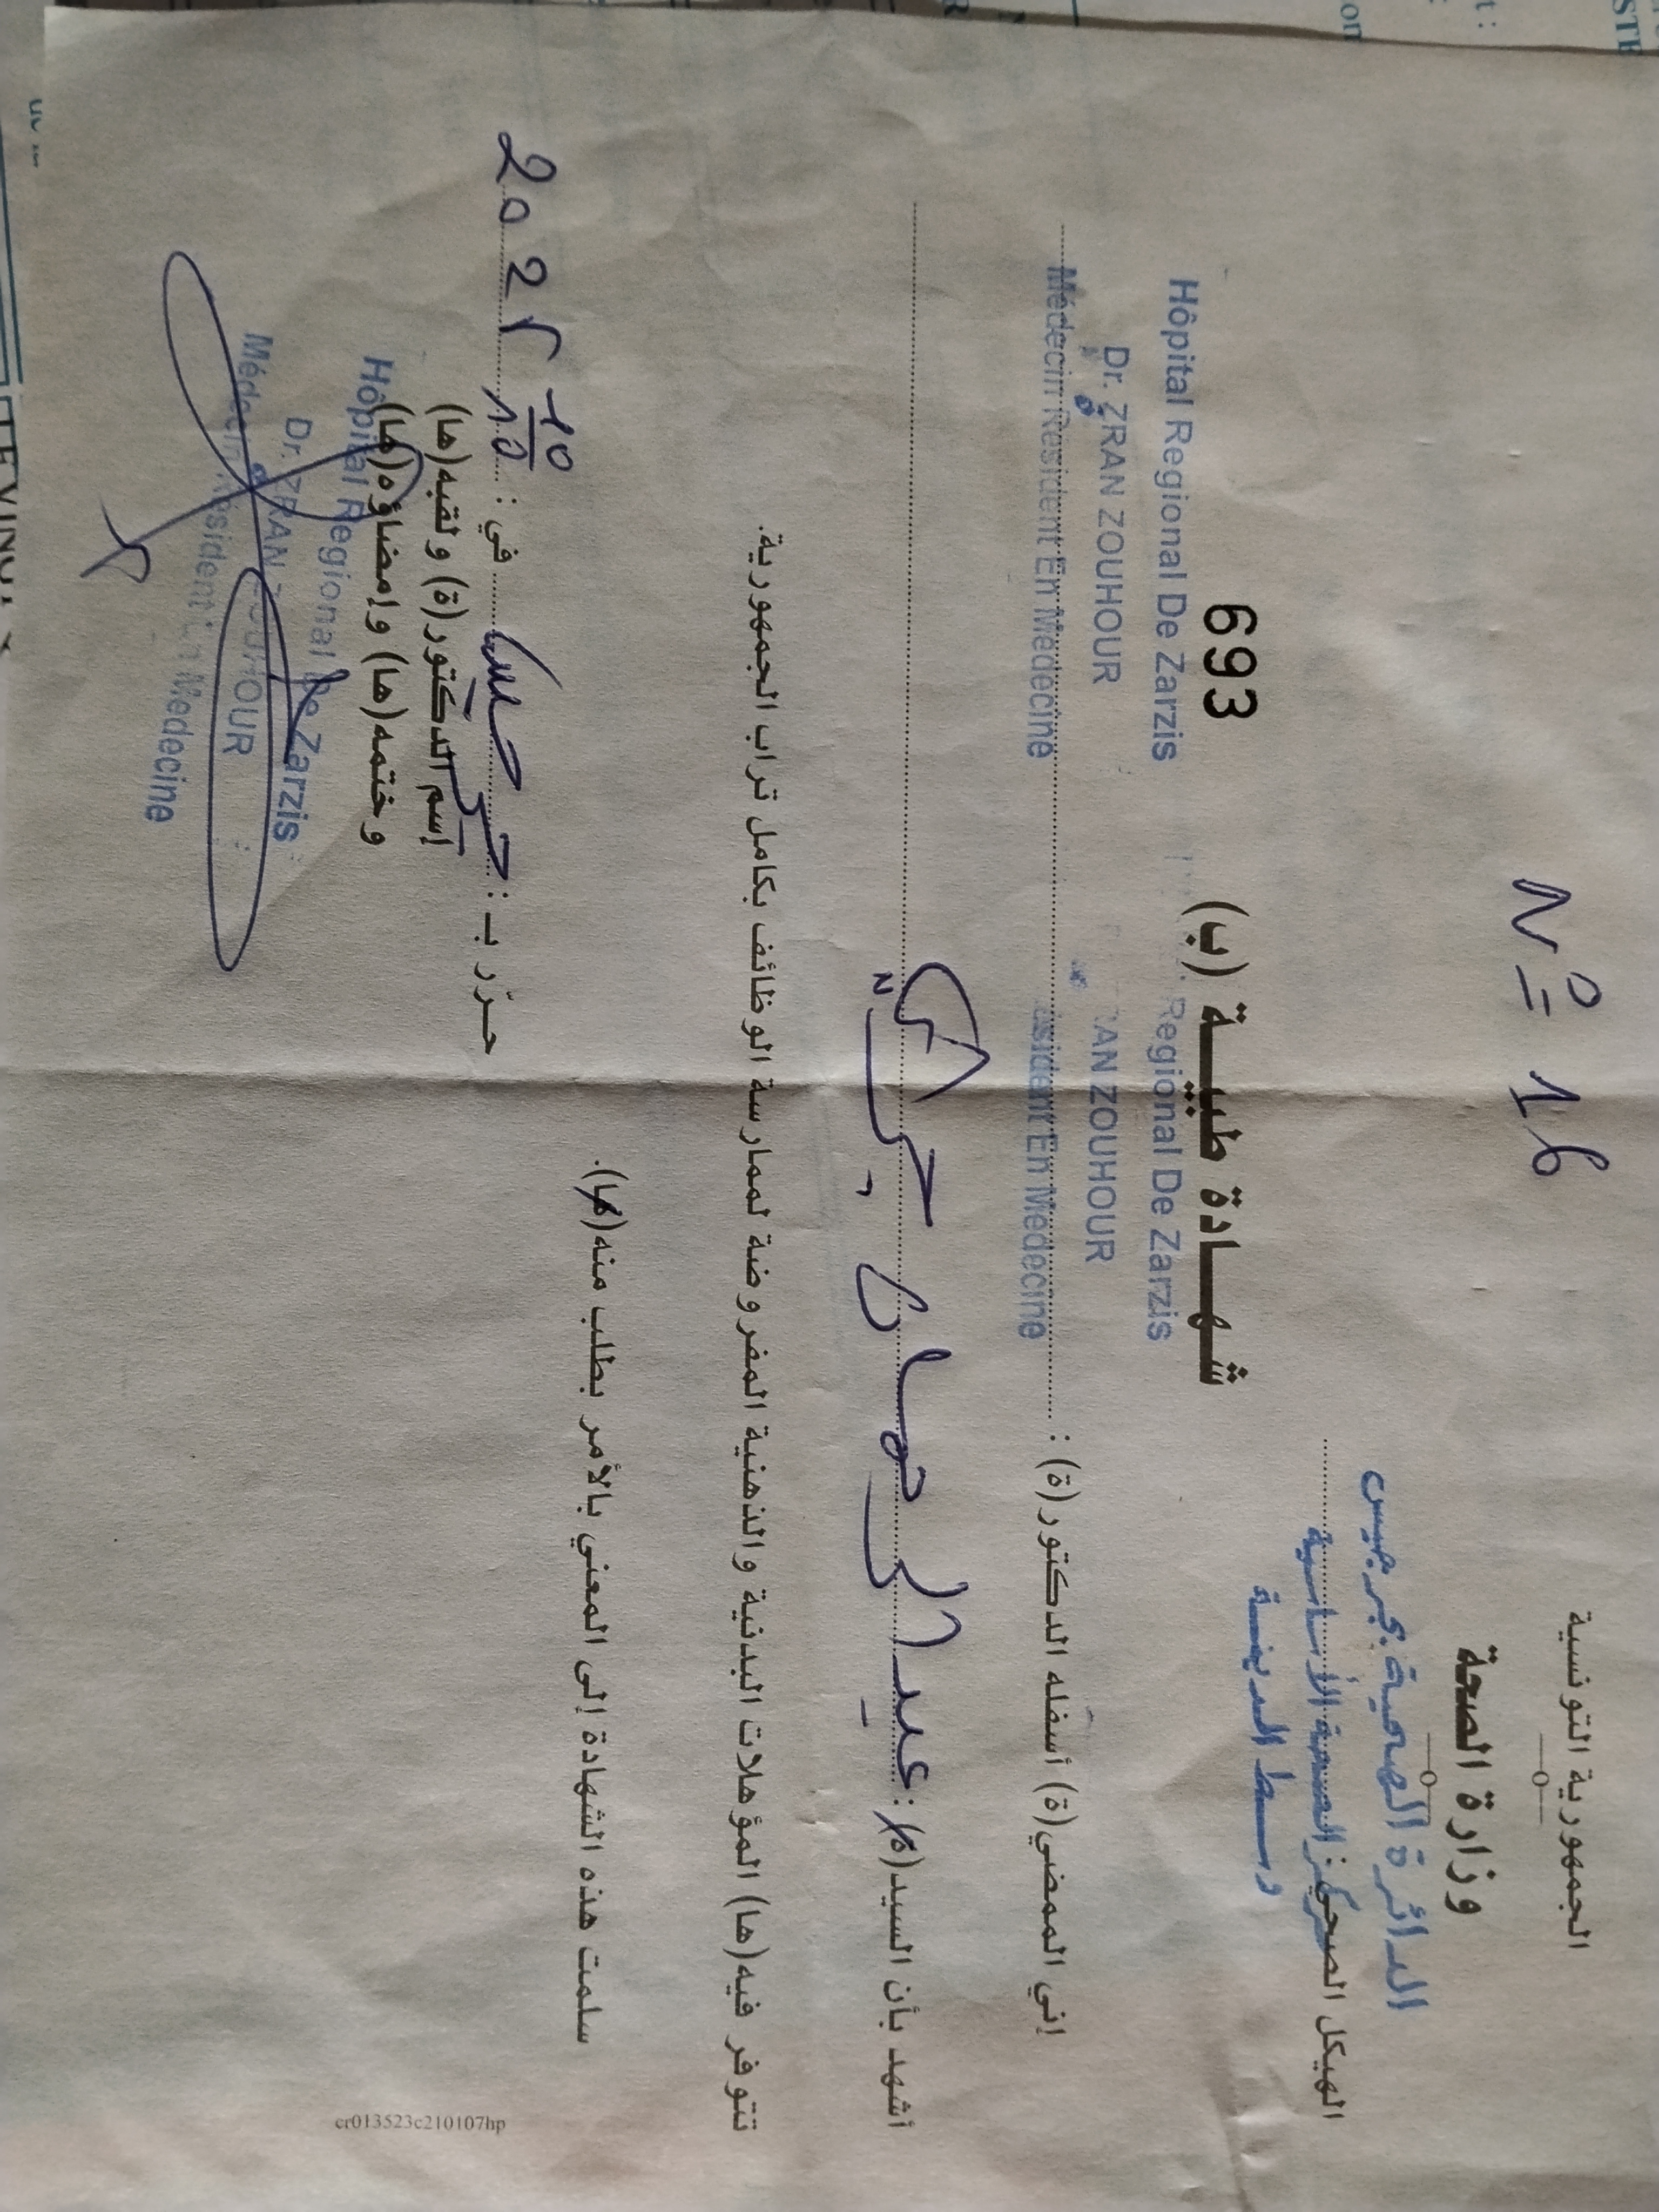 الجمهورية التونسية
وزارة الصحة
الدائرة الصحية بجرجيس
الهيكل الصحي: مركز الصحة الأساسية
وسط المدينة
N° 16
693
شهادة طبية (ب)
Hôpital Regional De Zarzis
Regional De Zarzis
إني الممضي(ة) أسفله الدكتور(ة) :
Dr. ZRAN ZOUHOUR
ZOUHOUR
Médecin Résident En Médecine
En Médecine
أشهد بأن السيد(ة) : عبد الرحمان
تتوفر فيه(ها) المؤهلات البدنية والذهنية المفروضة لممارسة الوظائف بكامل تراب الجمهورية.
سلمت هذه الشهادة إلى المعني بالأمر بطلب منه(ها).
حرّر بـ : جرجيس في : 10 10
إسم الدكتور(ة) ولقبه(ها)
وختمه(ها) وإمضاؤه(ها)
Hôpital Regional De Zarzis
Dr. ZRAN ZOUHOUR
Médecin Résident En Médecine
cr013523c210107hp